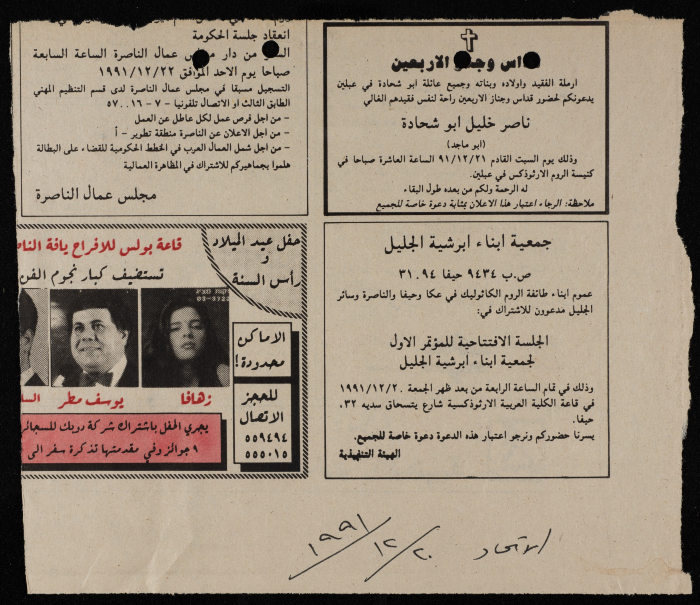 انعقاد جلسة الحكومة
من دار مجلس عمال الناصرة الساعة السابعة
صباحا يوم الاحد الموافق ١٩٩١/١٢/٢٢
التسجيل مسبقا في مجلس عمال الناصرة لدى قسم التنظيم المهني
الطابق الثالث او الاتصال تلفونيا - ٧ - ٥٧٠٠١٦
- من اجل فرص عمل لكل عاطل عن العمل
- من اجل الاعلان عن الناصرة منطقة تطوير - أ
- من اجل شمل العمال العرب في الخطط الحكومية للقضاء على البطالة
هلموا بجماهيركم للاشتراك في المظاهرة العمالية
مجلس عمال الناصرة
قداس وجناز الاربعين
ارملة الفقيد واولاده وبناته وجميع عائلة ابو شحادة في عبلين
يدعونكم لحضور قداس وجناز الاربعين راحة لنفس فقيدهم الغالي
ناصر خليل ابو شحادة
(ابو ماجد)
وذلك يوم السبت القادم ٩١/١٢/٢١ الساعة العاشرة صباحا في
كنيسة الروم الارثوذكس في عبلين.
له الرحمة ولكم من بعده طول البقاء
ملاحظة: الرجاء اعتبار هذا الاعلان بمثابة دعوة خاصة للجميع
جمعية ابناء ابرشية الجليل
ص.ب ٩٤٣٤ حيفا ٣١٠٩٤
عموم ابناء طائفة الروم الكاثوليك في عكا وحيفا والناصرة وسائر
الجليل مدعوون للاشتراك في:
الجلسة الافتتاحية للمؤتمر الاول
لجمعية ابناء ابرشية الجليل
وذلك في تمام الساعة الرابعة من بعد ظهر الجمعة ١٩٩١/١٢/٢٠
في قاعة الكلية العربية الارثوذكسية شارع يتسحاق سديه ٣٢،
حيفا.
يسرنا حضوركم ونرجو اعتبار هذه الدعوة دعوة خاصة للجميع.
الهيئة التنفيذية
حفل عيد الميلاد
و
رأس السنة
قاعة بولس للافراح يافة
تستضيف كبار نجوم الفن
03-3722
زهافا
يوسف مطر
الاماكن
محدودة!
للحجز
الاتصال
٥٥٩٤٩٤
٥٥٥٠١٥
يجري الحفل باشتراك شركة دوبك للسجائر
٩ جوائز وفي مقدمتها تذكرة سفر الى
الاتحاد ١٩٩١/١٢/٢٠